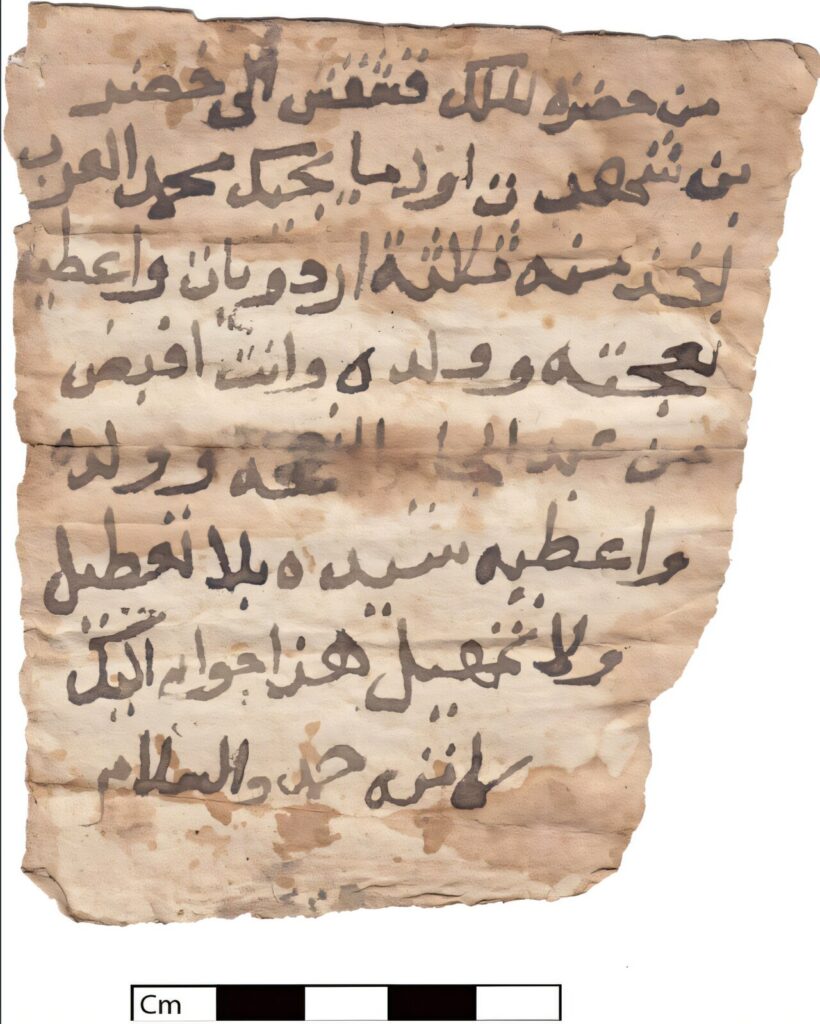 من حضرة الملك قشقش الى خضر
بن شهدت اورد ما يجيك محمد العرب
تاخذ منه ثلاثة اردويات واعطيه
نعجته وولده وانت اقبض
من عبد النعجه وولده
واعطيه سيده بلا تعطيل
ولا تمهيل هذا جوابي اليك
كاتبه حمد والسلام
Cm